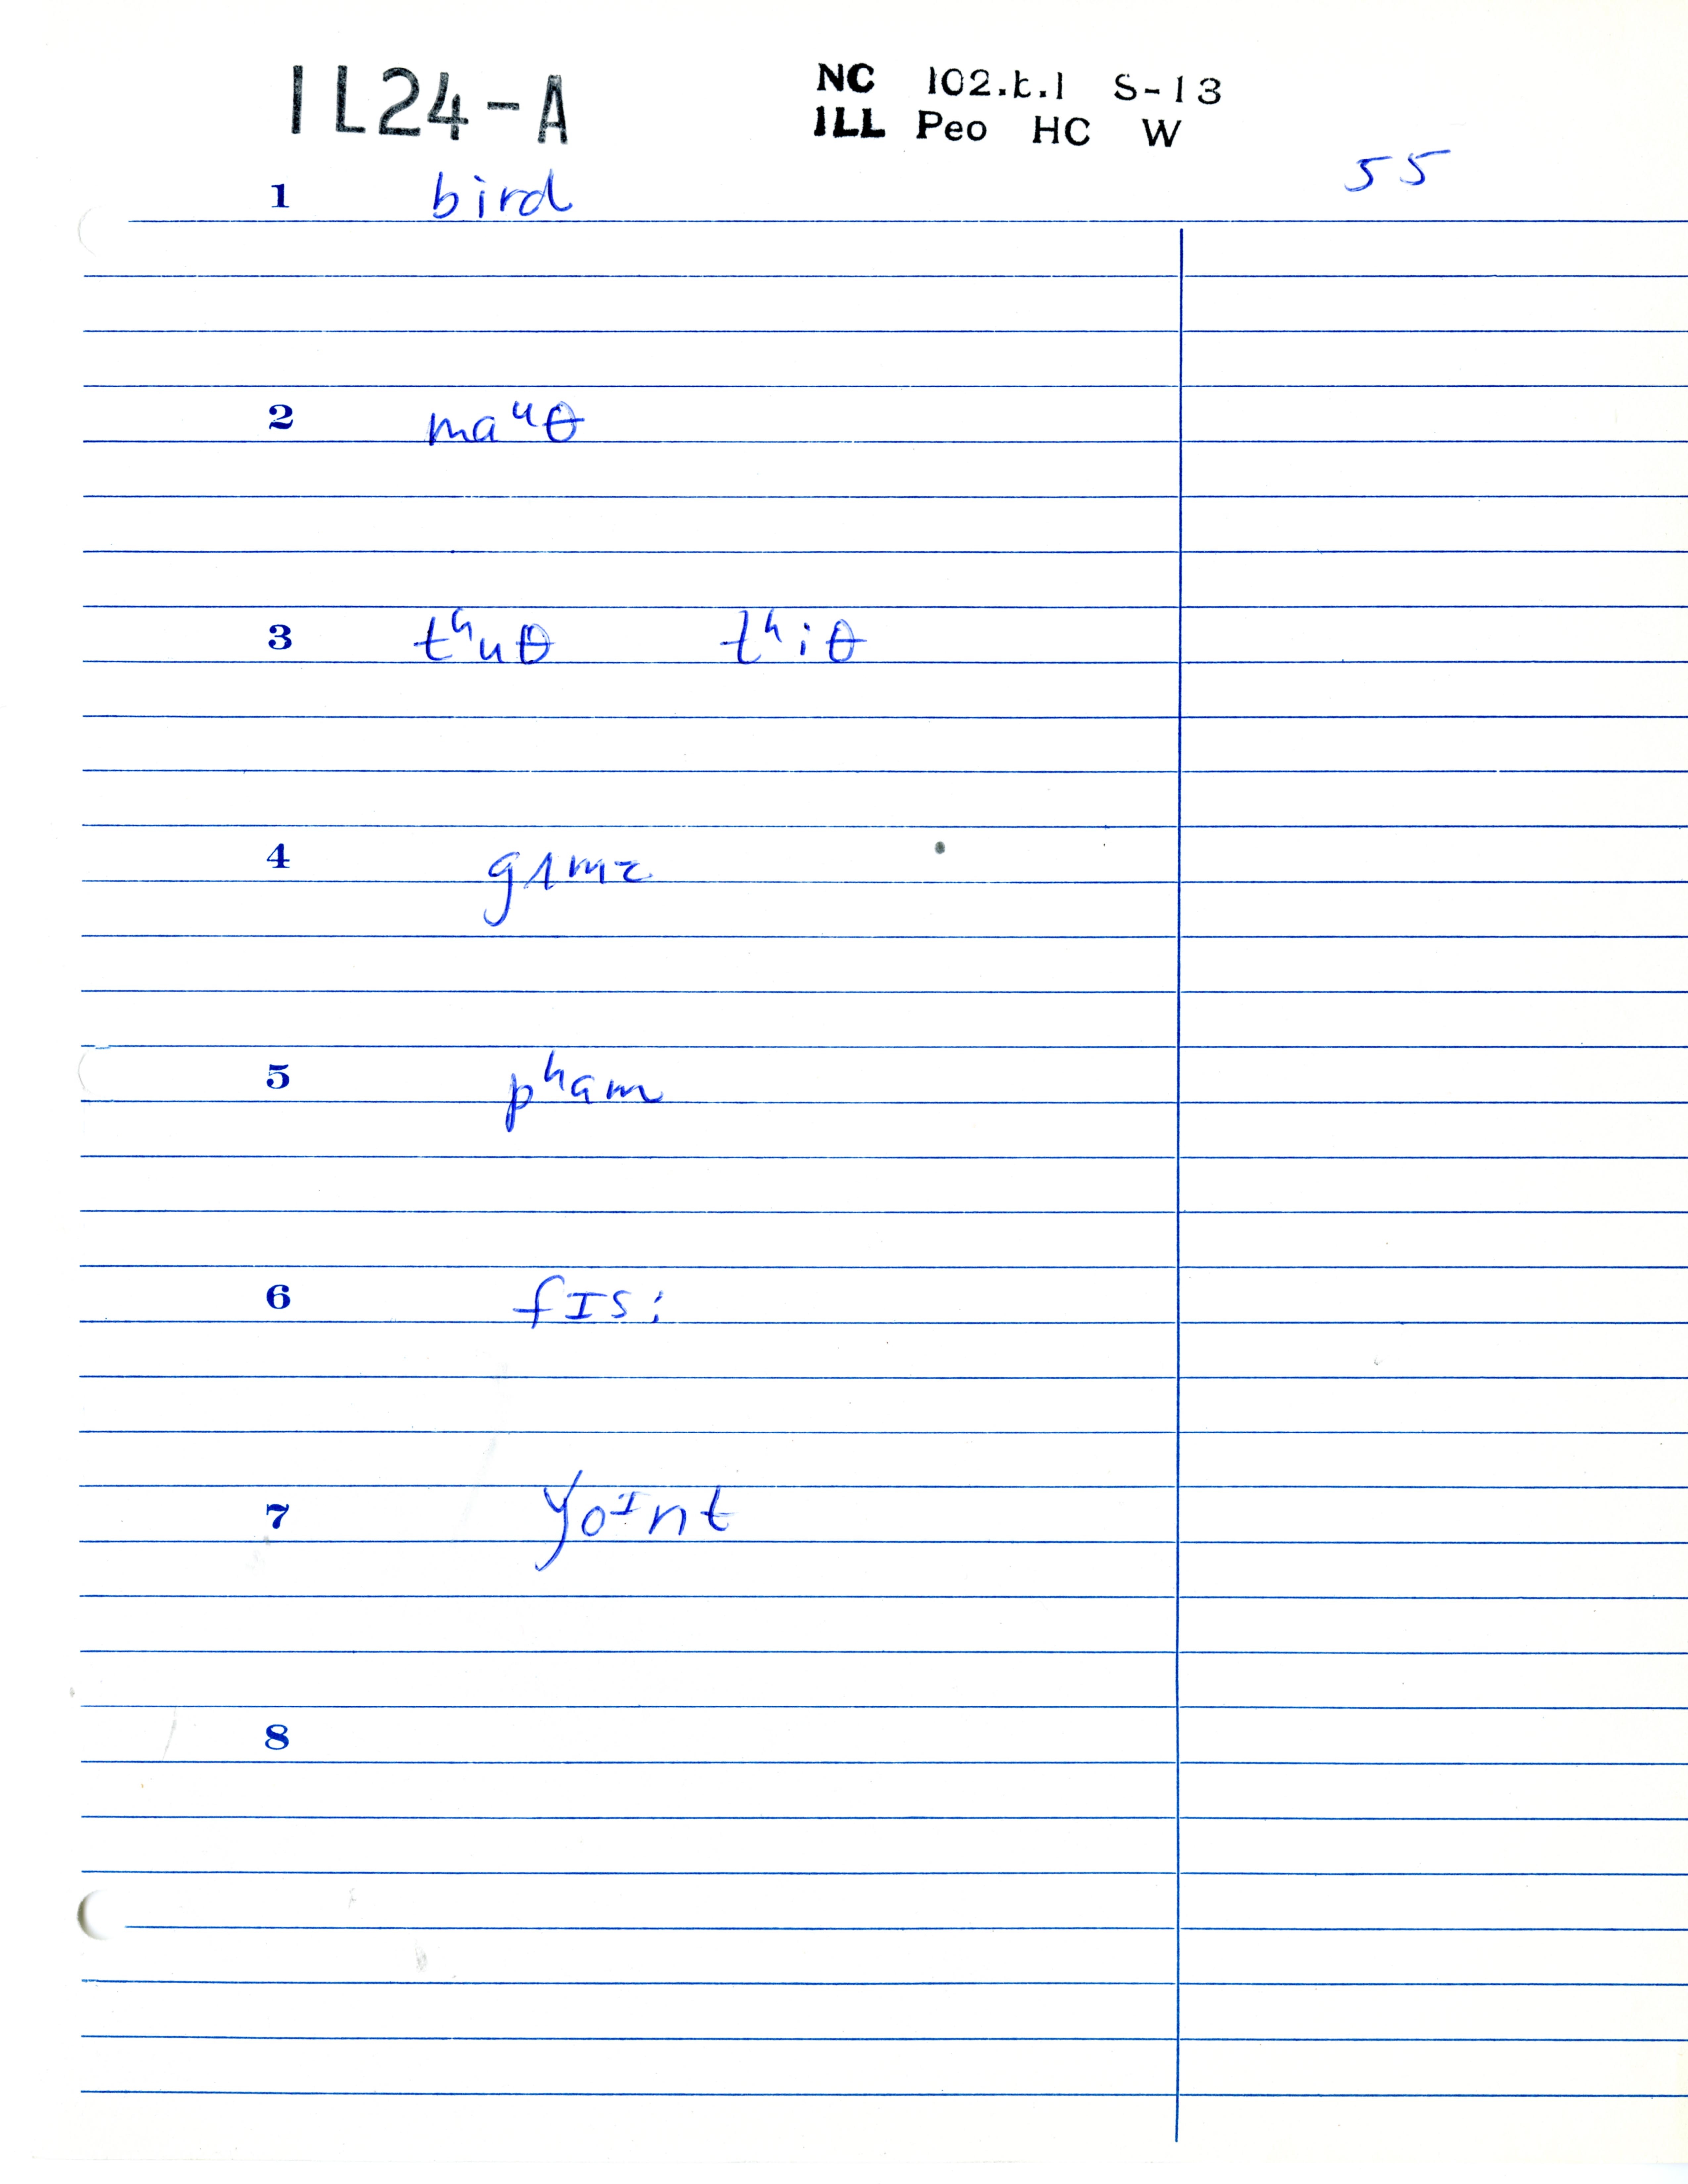 IL24-A NC 102.t.1 S-13
ILL Peo HC W
55
1 bird
2 maᵘθ
3 tʰuθ tʰiθ
4 gʌmz
5 pʰam
6 fɪs:
7 yoᴵnt
8